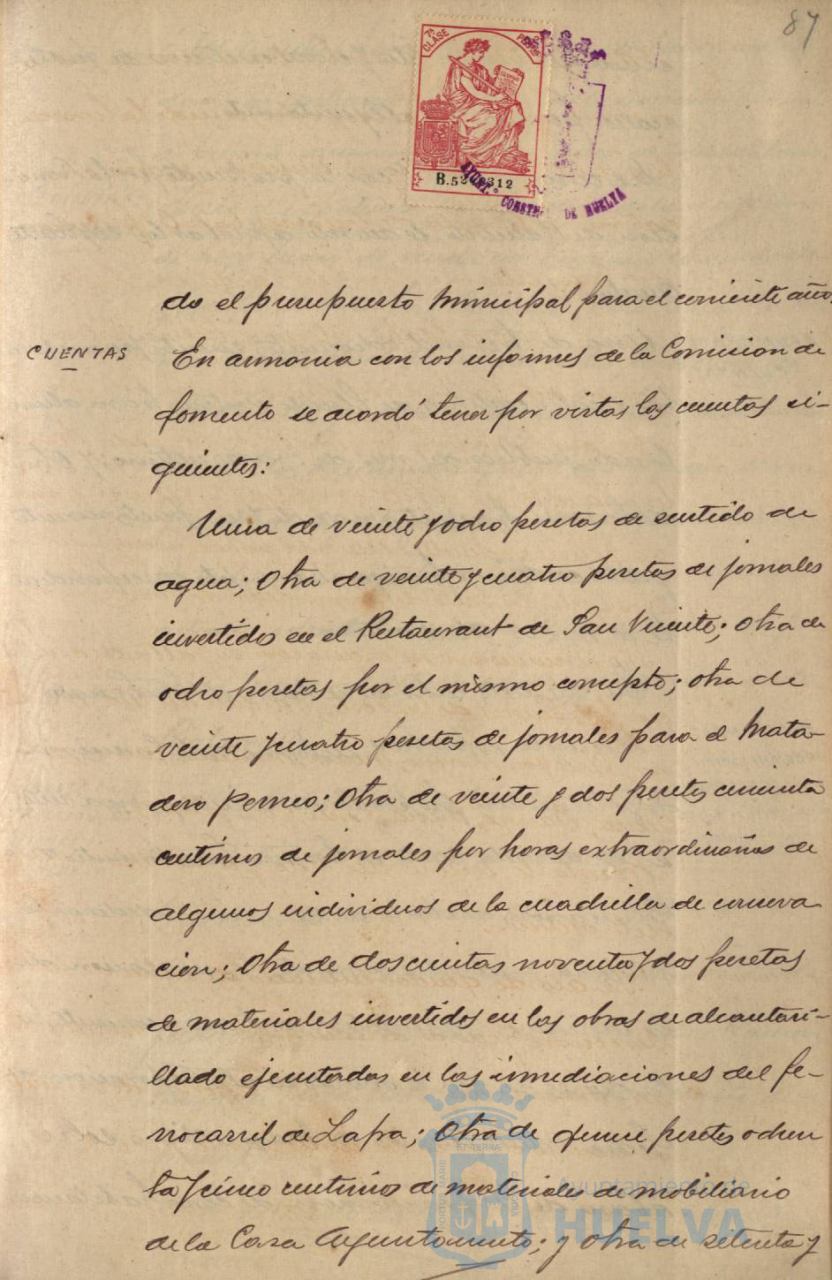 87
7ª CLASE
B.52
312
AYUNT.º CONSTL. DE HUELVA
do el presupuesto Municipal para el corriente año.
CUENTAS
En armonia con los informes de la Comision de
fomento se acordó tener por vistas las cuentas si-
guientes:
Una de veinte y ocho pesetas de surtido de
agua; Otra de veinte y cuatro pesetas de jornales
invertidos en el Restaurant de San Vicente; otra de
ocho pesetas por el mismo concepto; otra de
veinte y cuatro pesetas de jornales para el Mata-
dero Perneo; Otra de veinte y dos pesetas cincuenta
centimos de jornales por horas extraordinarias de
algunos individuos de la cuadrilla de conserva
cion; Otra de doscientas noventa y dos pesetas
de materiales invertidos en las obras de alcantari-
llado ejecutadas en las inmediaciones del fe-
rrocarril de Zafra; Otra de quince pesetas ochen
ta y cinco centimos de materiales de mobiliario
de la Casa Ayuntamiento; y Otra de setenta y
Ayuntamiento de
HUELVA